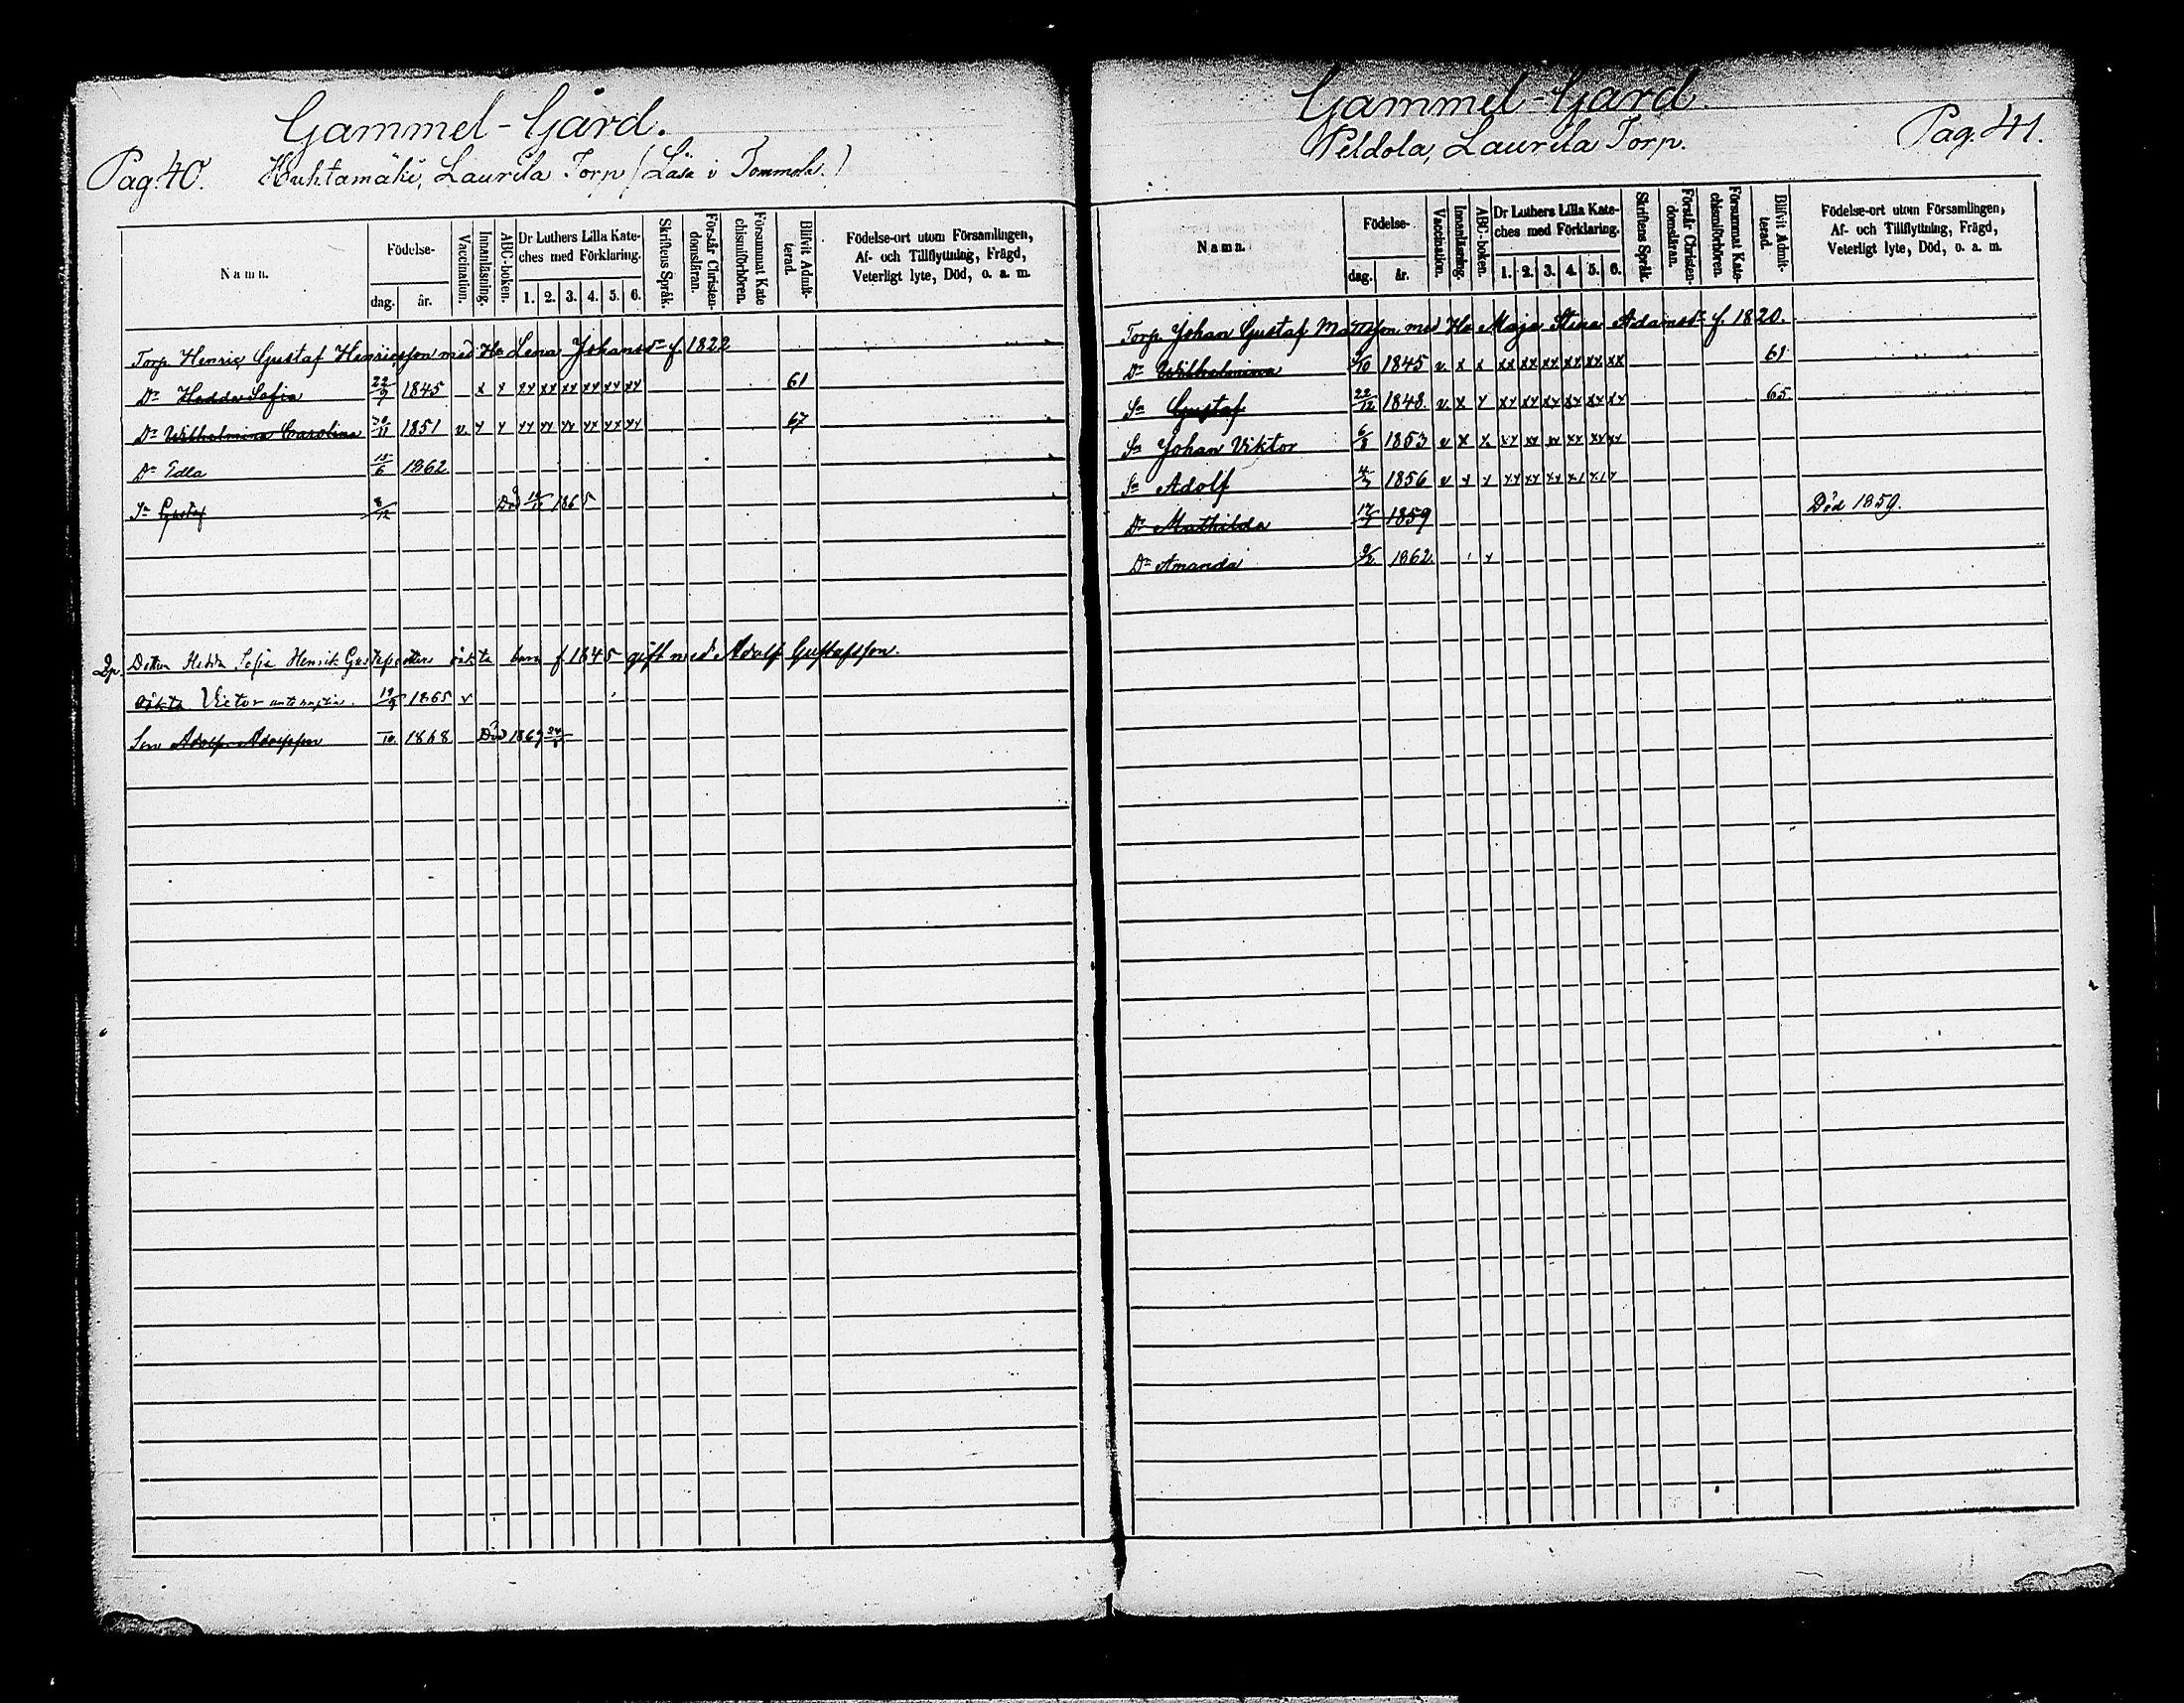 Gammel-Gård.
Pag. 40. Huhtamäki, Laurila Torp (Läsa i Tommola.)
Namn. Födelse- dag. år. Vaccination. Innanläsning. ABC-boken. Dr Luthers Lilla Kate-ches med Förklaring. 1. 2. 3. 4. 5. 6. Skriftens Språk. Förstår Christen-domsläran. Försummat Kate chismiförhören. Blifvit Admit-terad. Födelse-ort utom Församlingen, Af- och Tillflyttning, Frägd, Veterligt lyte, Död, o. a. m.
Torp. Henric Gustaf Henricsson med Hu Lena Johansdr f. 1822
Dr Hedda Sofia 22/9 1845 x x xx xx xx xx xx xx 61
Dr Wilhelmina Carolina 1851 v. x x xx xx xx xx xx xx 67
Dr Edla 1862
Sn Gustaf 8/12 Död 1865
Dottern Hedda Sofia Henrik Gustafs dotters f 1845 gift med Adolf Gustafsson.
Victor 1865 v
Son Adolf Adolfsson 1868 Död 1869
Gammel-Gård.
Peldola, Laurila Torp. Pag. 41.
Namn. Födelse- dag. år. Vaccination. Innanläsning. ABC-boken. Dr Luthers Lilla Kate-ches med Förklaring. 1. 2. 3. 4. 5. 6. Skriftens Språk. Förstår Christen-domsläran. Försummat Kate-chismiförhören. Blifvit Admit-terad. Födelse-ort utom Församlingen, Af- och Tillflyttning, Frägd, Veterligt lyte, Död, o. a. m.
Torp. Johan Gustaf Mattsson med Hu Maja Stina Adamsdr f. 1820.
Dr Wilhelmina 1845 v. x x xx xx xx xx xx xx 61
Sn Gustaf 22/12 1848. v. x x xx xx xx xx xx xx 65
Sn Johan Viktor 6/8 1853 v x x xx xx xx xx xx xx
Sn Adolf 1856 v x x xx xx xx
Dr Mathilda 1859 Död 1859.
Dr Amanda 1862